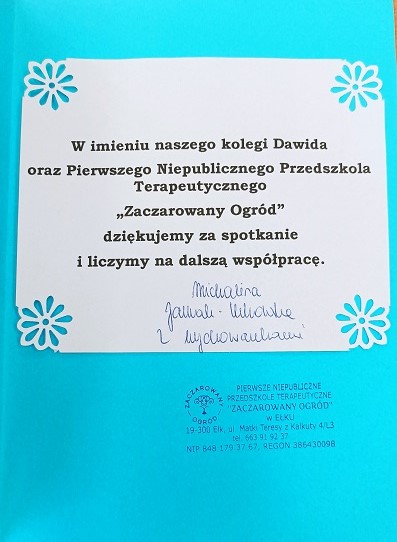 W imieniu naszego kolegi Dawida
oraz Pierwszego Niepublicznego Przedszkola
Terapeutycznego
„Zaczarowany Ogród”
dziękujemy za spotkanie
i liczymy na dalszą współpracę.
Michalina
z wychowankami
ZACZAROWANY
OGRÓD
PIERWSZE NIEPUBLICZNE
PRZEDSZKOLE TERAPEUTYCZNE
"ZACZAROWANY OGRÓD"
w EŁKU
19-300 Ełk, ul. Matki Teresy z Kalkuty 4/L3
tel. 663 91 92 37
NIP 848 179 37 67, REGON 386430098